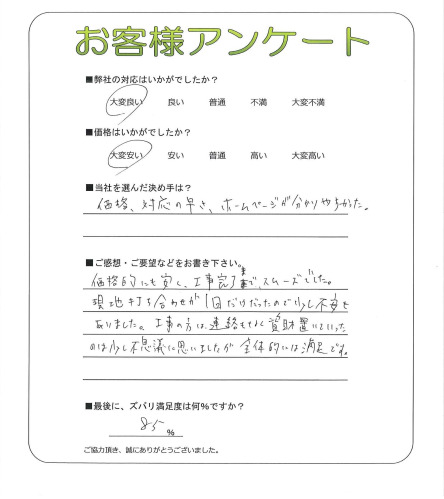 お客様アンケート
■弊社の対応はいかがでしたか？
大変良い 良い 普通 不満 大変不満
■価格はいかがでしたか？
大変安い 安い 普通 高い 大変高い
■当社を選んだ決め手は？
価格、対応の早さ、ホームページが分かりやすかった。
■ご感想・ご要望などをお書き下さい。
価格的にも安く、工事完了まで、スムーズでした。
現地打ち合わせが1回だけだったので少し不安も
ありました。工事の方は、連絡もなく資財置いていった
のは少し不思議に思いましたが全体的には満足です。
■最後に、ズバリ満足度は何%ですか？
85 %
ご協力頂き、誠にありがとうございました。